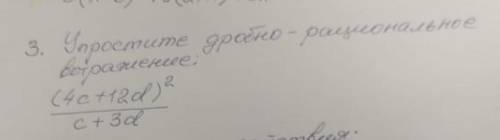 3. Упростите дробно-рациональное
выражение:
(4c+12d)²
c+3d